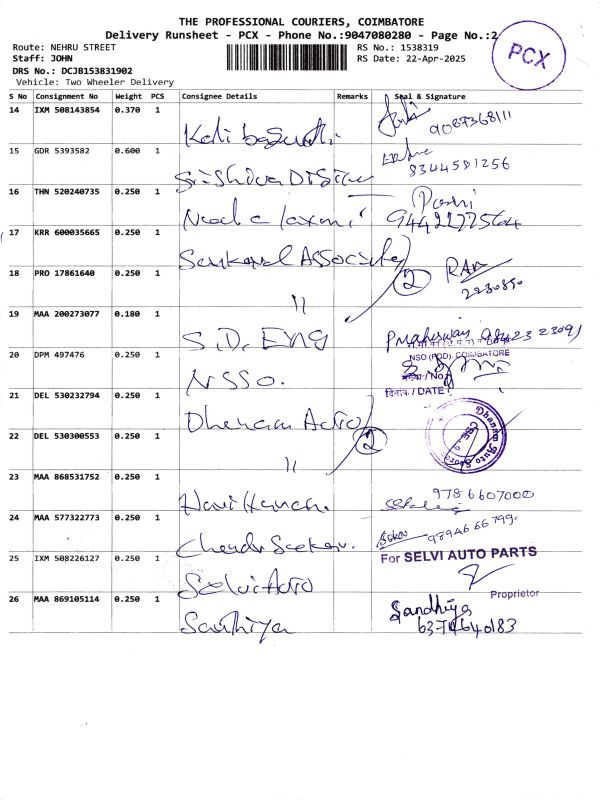 THE PROFESSIONAL COURIERS, COIMBATORE
Delivery Runsheet - PCX - Phone No.:9047080280 - Page No.:2
Route: NEHRU STREET
RS No.: 1538319
Staff: JOHN
RS Date: 22-Apr-2025
DRS No.: DCJB153831902
Vehicle: Two Wheeler Delivery
PCX
S No Consignment No Weight PCS Consignee Details Remarks Seal & Signature
14 IXM 508143854 0.370 1
9087368111
15 GDR 5393582 0.600 1
8344581256
16 THN 520240735 0.250 1
17 KRR 600035665 0.250 1 Associates
18 PRO 17861640 0.250 1 "
2
2230850
19 MAA 200273077 0.180 1 S.D. ENG
20 DPM 497476 0.250 1 NSSO.
NSO (FOD), COIMBATORE
/ No
दिनांक / DATE
21 DEL 530232794 0.250 1 Dhanam Auto
22 DEL 530300553 0.250 1 "
2
Dhanam Auto
23 MAA 868531752 0.250 1
978 6607000
24 MAA 577322773 0.250 1 Chandr Seekar.
25 IXM 508226127 0.250 1 Selvi Auto
For SELVI AUTO PARTS
Proprietor
26 MAA 869105114 0.250 1 Santhiya
Sandhiya
6374640183